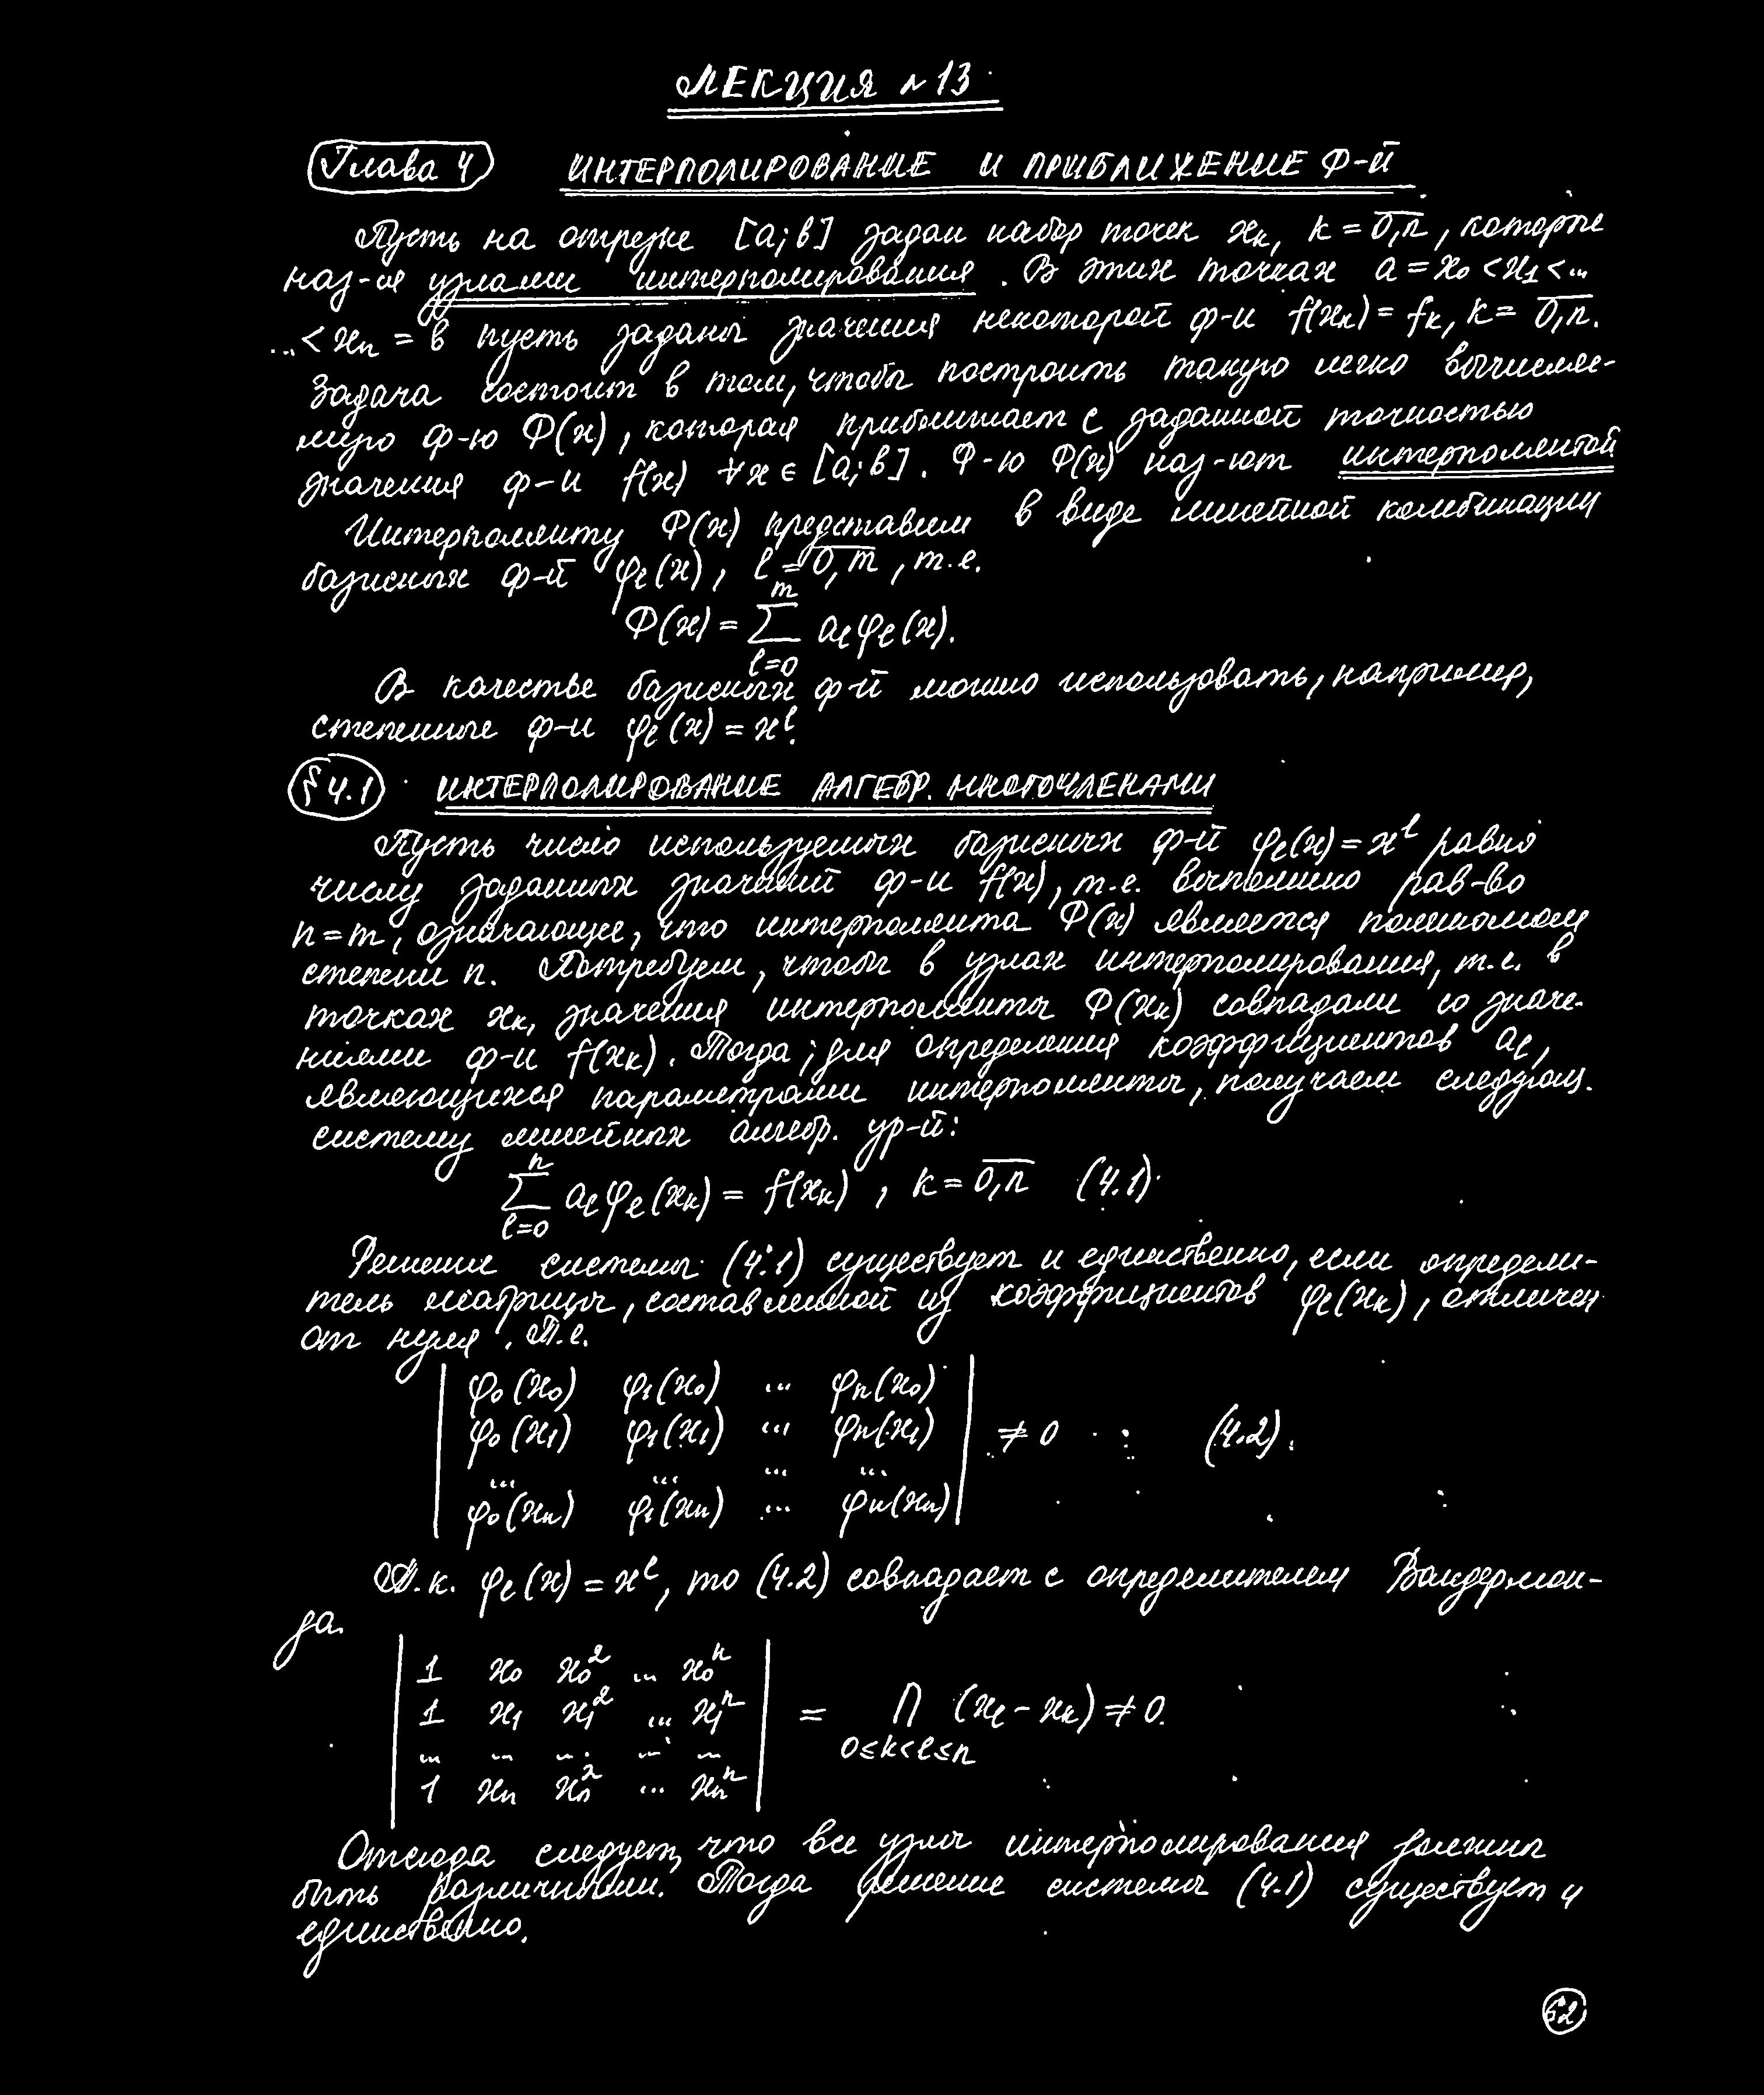 ЛЕКЦИЯ № 13
Глава 4 ИНТЕРПОЛИРОВАНИЕ И ПРИБЛИЖЕНИЕ Ф-Й
Пусть на отрезке [a; b] задан набор точек xₖ, k = 0,n̅, которые
наз-ся узлами интерполирования. В этих точках a = x₀ < x₁ < ...
... < xₙ = b пусть заданы значения некоторой ф-и f(xₖ) = fₖ, k = 0,n̅.
Задача состоит в том, чтобы построить такую легко вычисляе-
мую ф-ю Φ(x), которая приближает с заданной точностью
значения ф-и f(x) ∀x ∈ [a; b]. Ф-ю Φ(x) наз-ют интерполянтой
Интерполянту Φ(x) представим в виде линейной комбинации
базисных ф-й φₗ(x), l = 0,m̅, т.е.
Φ(x) = ∑_{l=0}^{m} aₗφₗ(x).
В качестве базисных ф-й можно использовать, например,
степенные ф-и φₗ(x) = xˡ.
§ 4.1 ИНТЕРПОЛИРОВАНИЕ АЛГЕБР. МНОГОЧЛЕНАМИ
Пусть число используемых базисных ф-й φₗ(x) = xˡ равно
числу заданных значений ф-и f(x), т.е. выполнено рав-во
n = m, означающее, что интерполянта Φ(x) является полиномом
степени n. Потребуем, чтобы в узлах интерполирования, т.е. в
точках xₖ, значения интерполянты Φ(xₖ) совпадали со значе-
ниями ф-и f(xₖ). Тогда, для определения коэффициентов aₗ,
являющихся параметрами интерполянты, получаем следующ.
систему линейных алгебр. ур-й:
∑_{l=0}^{n} aₗφₗ(xₖ) = f(xₖ), k = 0,n̅ (4.1)
Решение системы (4.1) существует и единственно, если определи-
тель матрицы, составленной из коэффициентов φₗ(xₖ), отличен
от нуля. Т.е.
| φ₀(x₀) φ₁(x₀) ... φₙ(x₀) |
| φ₀(x₁) φ₁(x₁) ... φₙ(x₁) | ≠ 0 (4.2).
| ... ... ... ... |
| φ₀(xₙ) φ₁(xₙ) ... φₙ(xₙ) |
Т.к. φₗ(x) = xˡ, то (4.2) совпадает с определителем Вандермон-
да.
| 1 x₀ x₀² ... x₀ⁿ |
| 1 x₁ x₁² ... x₁ⁿ | = ∏_{0≤k<l≤n} (xₗ - xₖ) ≠ 0.
| ... ... ... ... ... |
| 1 xₙ xₙ² ... xₙⁿ |
Отсюда следует, что все узлы интерполирования должны
быть различными. Тогда решение системы (4.1) существует и
единственно.
62